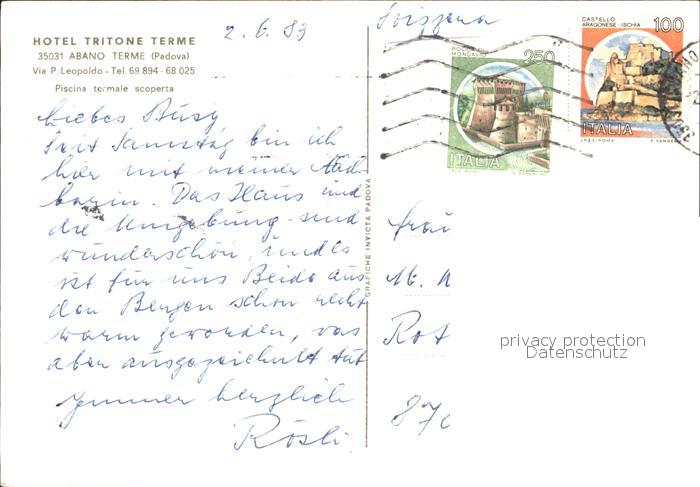 2. 6. 83
Svizzera
HOTEL TRITONE TERME
35031 ABANO TERME (Padova)
Via P. Leopoldo - Tel. 69.894 - 68.025
Piscina termale scoperta
ROCCA DI
MONDAVIO
250
ITALIA
CASTELLO
ARAGONESE - ISCHIA
100
ITALIA
I.P.Z.S. ROMA
GRAFICHE INVICTA PADOVA
Liebes Busy
Seit Samstag bin ich
hier mit meiner Nach
barin. Das Haus und
die Umgebung sind
wunderschön, und es
ist für uns Beide aus
den Bergen schon recht
warm geworden, was
aber ausgezeichnet tut
Immer herzlich
Rösli
Frau
M.
Rot
87
privacy protection
Datenschutz